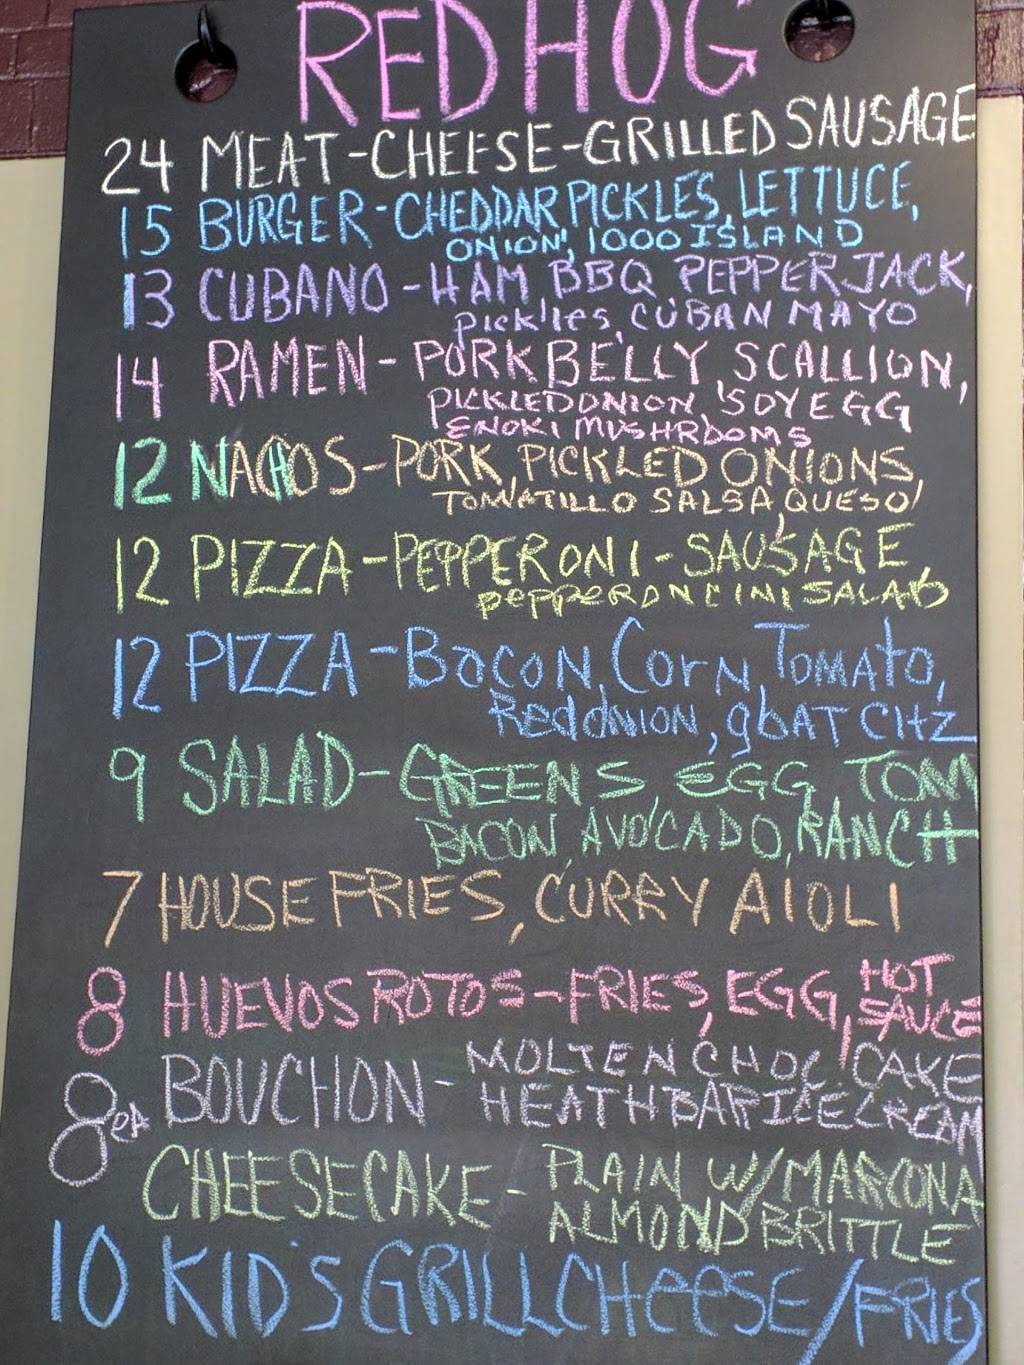 RED HOG
24 MEAT-CHEESE-GRILLED SAUSAGE
15 BURGER-CHEDDAR PICKLES, LETTUCE,
ONION, 1000 ISLAND
13 CUBANO-HAM BBQ PEPPER JACK,
pickles, CUBAN MAYO
14 RAMEN-PORK BELLY, SCALLION,
PICKLED ONION, SOY EGG
ENOKI MUSHROOMS
12 NACHOS-PORK, PICKLED ONIONS,
TOMATILLO SALSA, QUESO
12 PIZZA-PEPPERONI-SAUSAGE,
PEPPERONCINI SALAD
12 PIZZA-BaCON, Corn, TOMAto,
Red ONION, gOAT CHZ
9 SALAD-GREENS EGG, TOM
BACON, AVOCADO, RANCH
7 HOUSE FRIES, CURRY AIOLI
8 HUEVOS ROTOS-FRIES, EGG, HOT
SAUCE
8 EA BOUCHON-MOLTEN CHOC CAKE
HEATH BAR ICE CREAM
CHEESECAKE-PLAIN W/MARCONA
ALMOND BRITTLE
10 KID'S GRILL CHEESE/FRIES